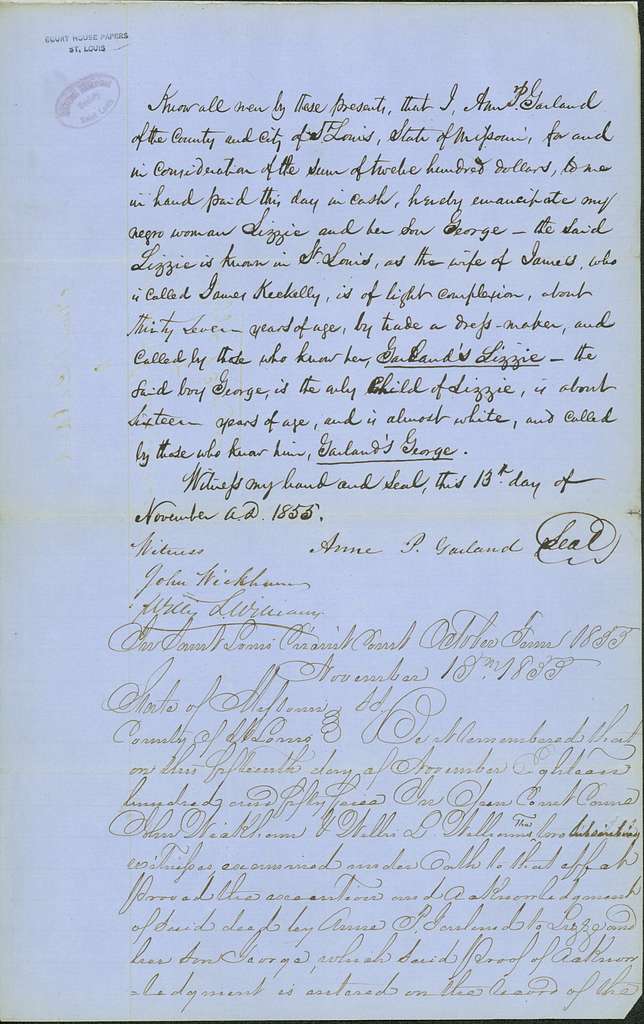 COURT HOUSE PAPERS
ST, LOUIS
Know all men by these presents, that I, Ann P. Garland
of the County and City of St Louis, State of Missouri, for and
in consideration of the sum of twelve hundred dollars, to me
in hand paid this day in cash, hereby emancipate my
negro woman Lizzie and her son George – the said
Lizzie is known in St. Louis, as the wife of James, who
is called James Keckelly, is of light complexion, about
thirty seven years of age, by trade a dress-maker, and
called by those who know her, Garland's Lizzie – the
said boy George, is the only Child of Lizzie, is about
sixteen years of age, and is almost white, and called
by those who know him, Garland's George.
Witness my hand and seal, this 13th day of
November A.D. 1855.
Witness Anne P. Garland Seal
John Wickham
Willis L. Williams
In Saint Louis Circuit Court October Term 1855
November 15th 1855
State of Missouri
County of St Louis } Be it remembered that
on this fifteenth day of November Eighteen
hundred and fifty five In Open Court Came
John Wickham & Willis L. Williams, two subscribing
witnesses examined under Oath to that effect
Proved the execution and acknowledgment
of said deed by Anne P. Garland to Lizzie and
her son George, which said Proof of acknow
-ledgment is entered on the record of the